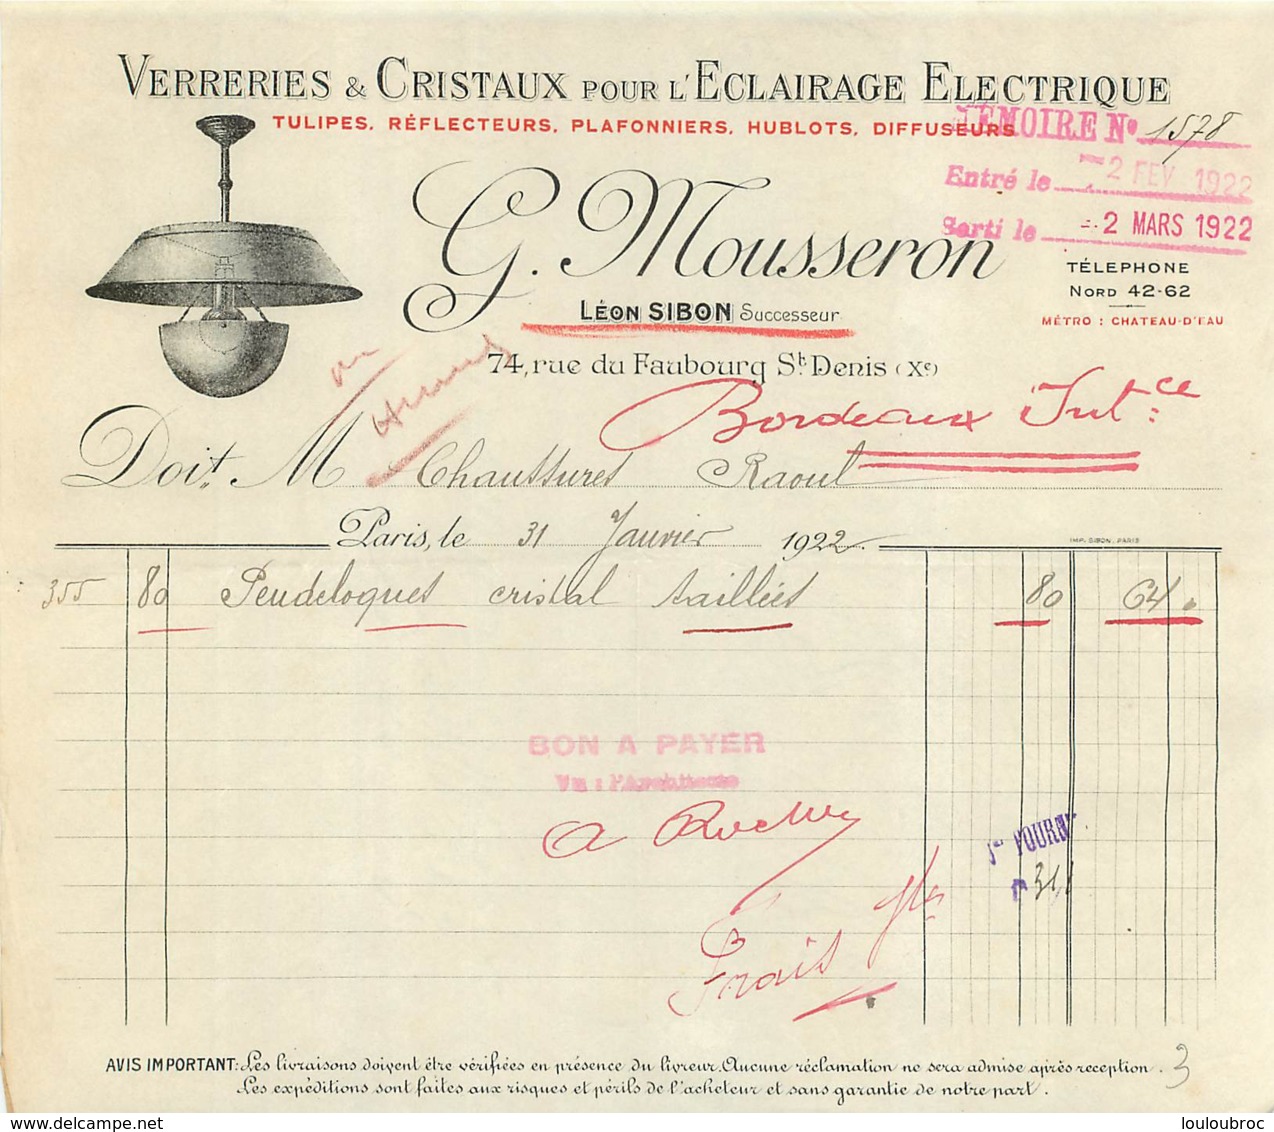 VERRERIES & CRISTAUX POUR L'ECLAIRAGE ELECTRIQUE
TULIPES. RÉFLECTEURS. PLAFONNIERS. HUBLOTS. DIFFUSEURS
MÉMOIRE No 1578
Entré le -2 FEV 1922
Sorti le -2 MARS 1922
G. Mousseron
LÉON SIBON Successeur
TÉLEPHONE
NORD 42-62
MÉTRO : CHATEAU-D'EAU
74, rue du Faubourg St. Denis (Xe)
Bordeaux Intce
Doit. M Chaussures Raoul
Paris, le 31 Janvier 1922
IMP. SIBON, PARIS
355 80 Pendeloques cristal taillées 80 64.
BON A PAYER
Vu : l'Architecte
FOURN
311
Frais
AVIS IMPORTANT: Les livraisons doivent être vérifiées en présence du livreur. Aucune réclamation ne sera admise après reception.
Les expéditions sont faites aux risques et périls de l'acheteur et sans garantie de notre part.
3
delcampe.net
louloubroc